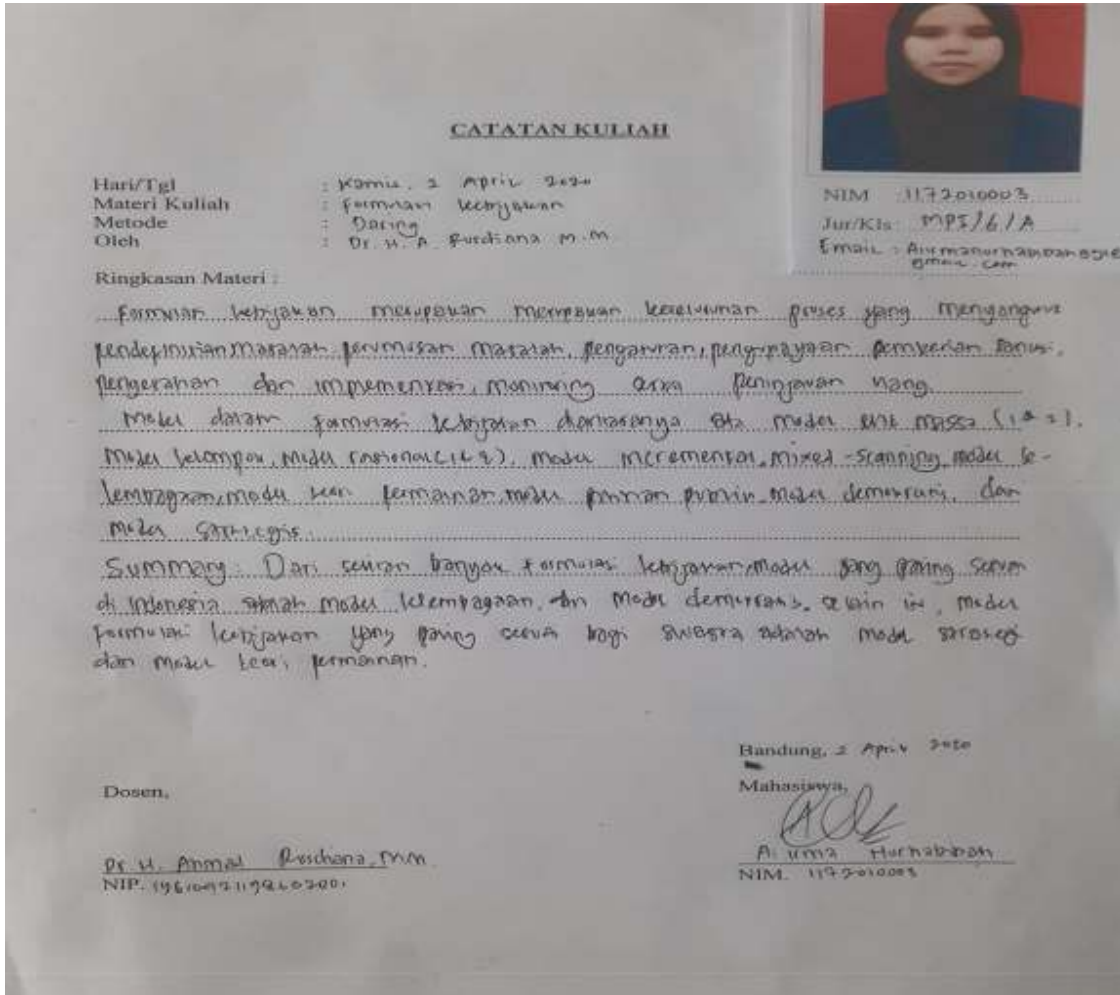 CATATAN KULIAH
Hari/Tgl : Kamis, 2 April 2020
Materi Kuliah : Formulasi kebijakan
Metode : Daring
Oleh : Dr. H. A. Rusdiana M.M
NIM : 1172010003
Jur/Kls : MPI/6/A
Email :
gmail.com
Ringkasan Materi :
Formulasi kebijakan merupakan merupakan keseluruhan proses yang menyangkut
pendefinisian masalah, perumusan masalah, pengaturan, pengupayaan pemberian sanksi,
pengerahan dan implementasi, monitoring peninjauan ulang.
Model dalam formulasi kebijakan diantaranya model elit massa (1&2),
model kelompok, model rasional (1&2), model incremental, mixed-scanning, model ke-
lembagaan, model teori permainan, model pilihan publik, model demokratis, dan
model strategis.
Summary : Dari sekian banyak formulasi kebijakan, model yang paling sesuai
di Indonesia adalah model kelembagaan, dan model demokratis, selain itu, model
formulasi kebijakan yang paling sesuai bagi swasta adalah model strategi
dan model teori permainan.
Bandung, 2 April 2020
Dosen,
Mahasiswa,
Dr. H. Ahmad Rusdiana, MM
NIP.
Ai Uma
NIM. 1172010003